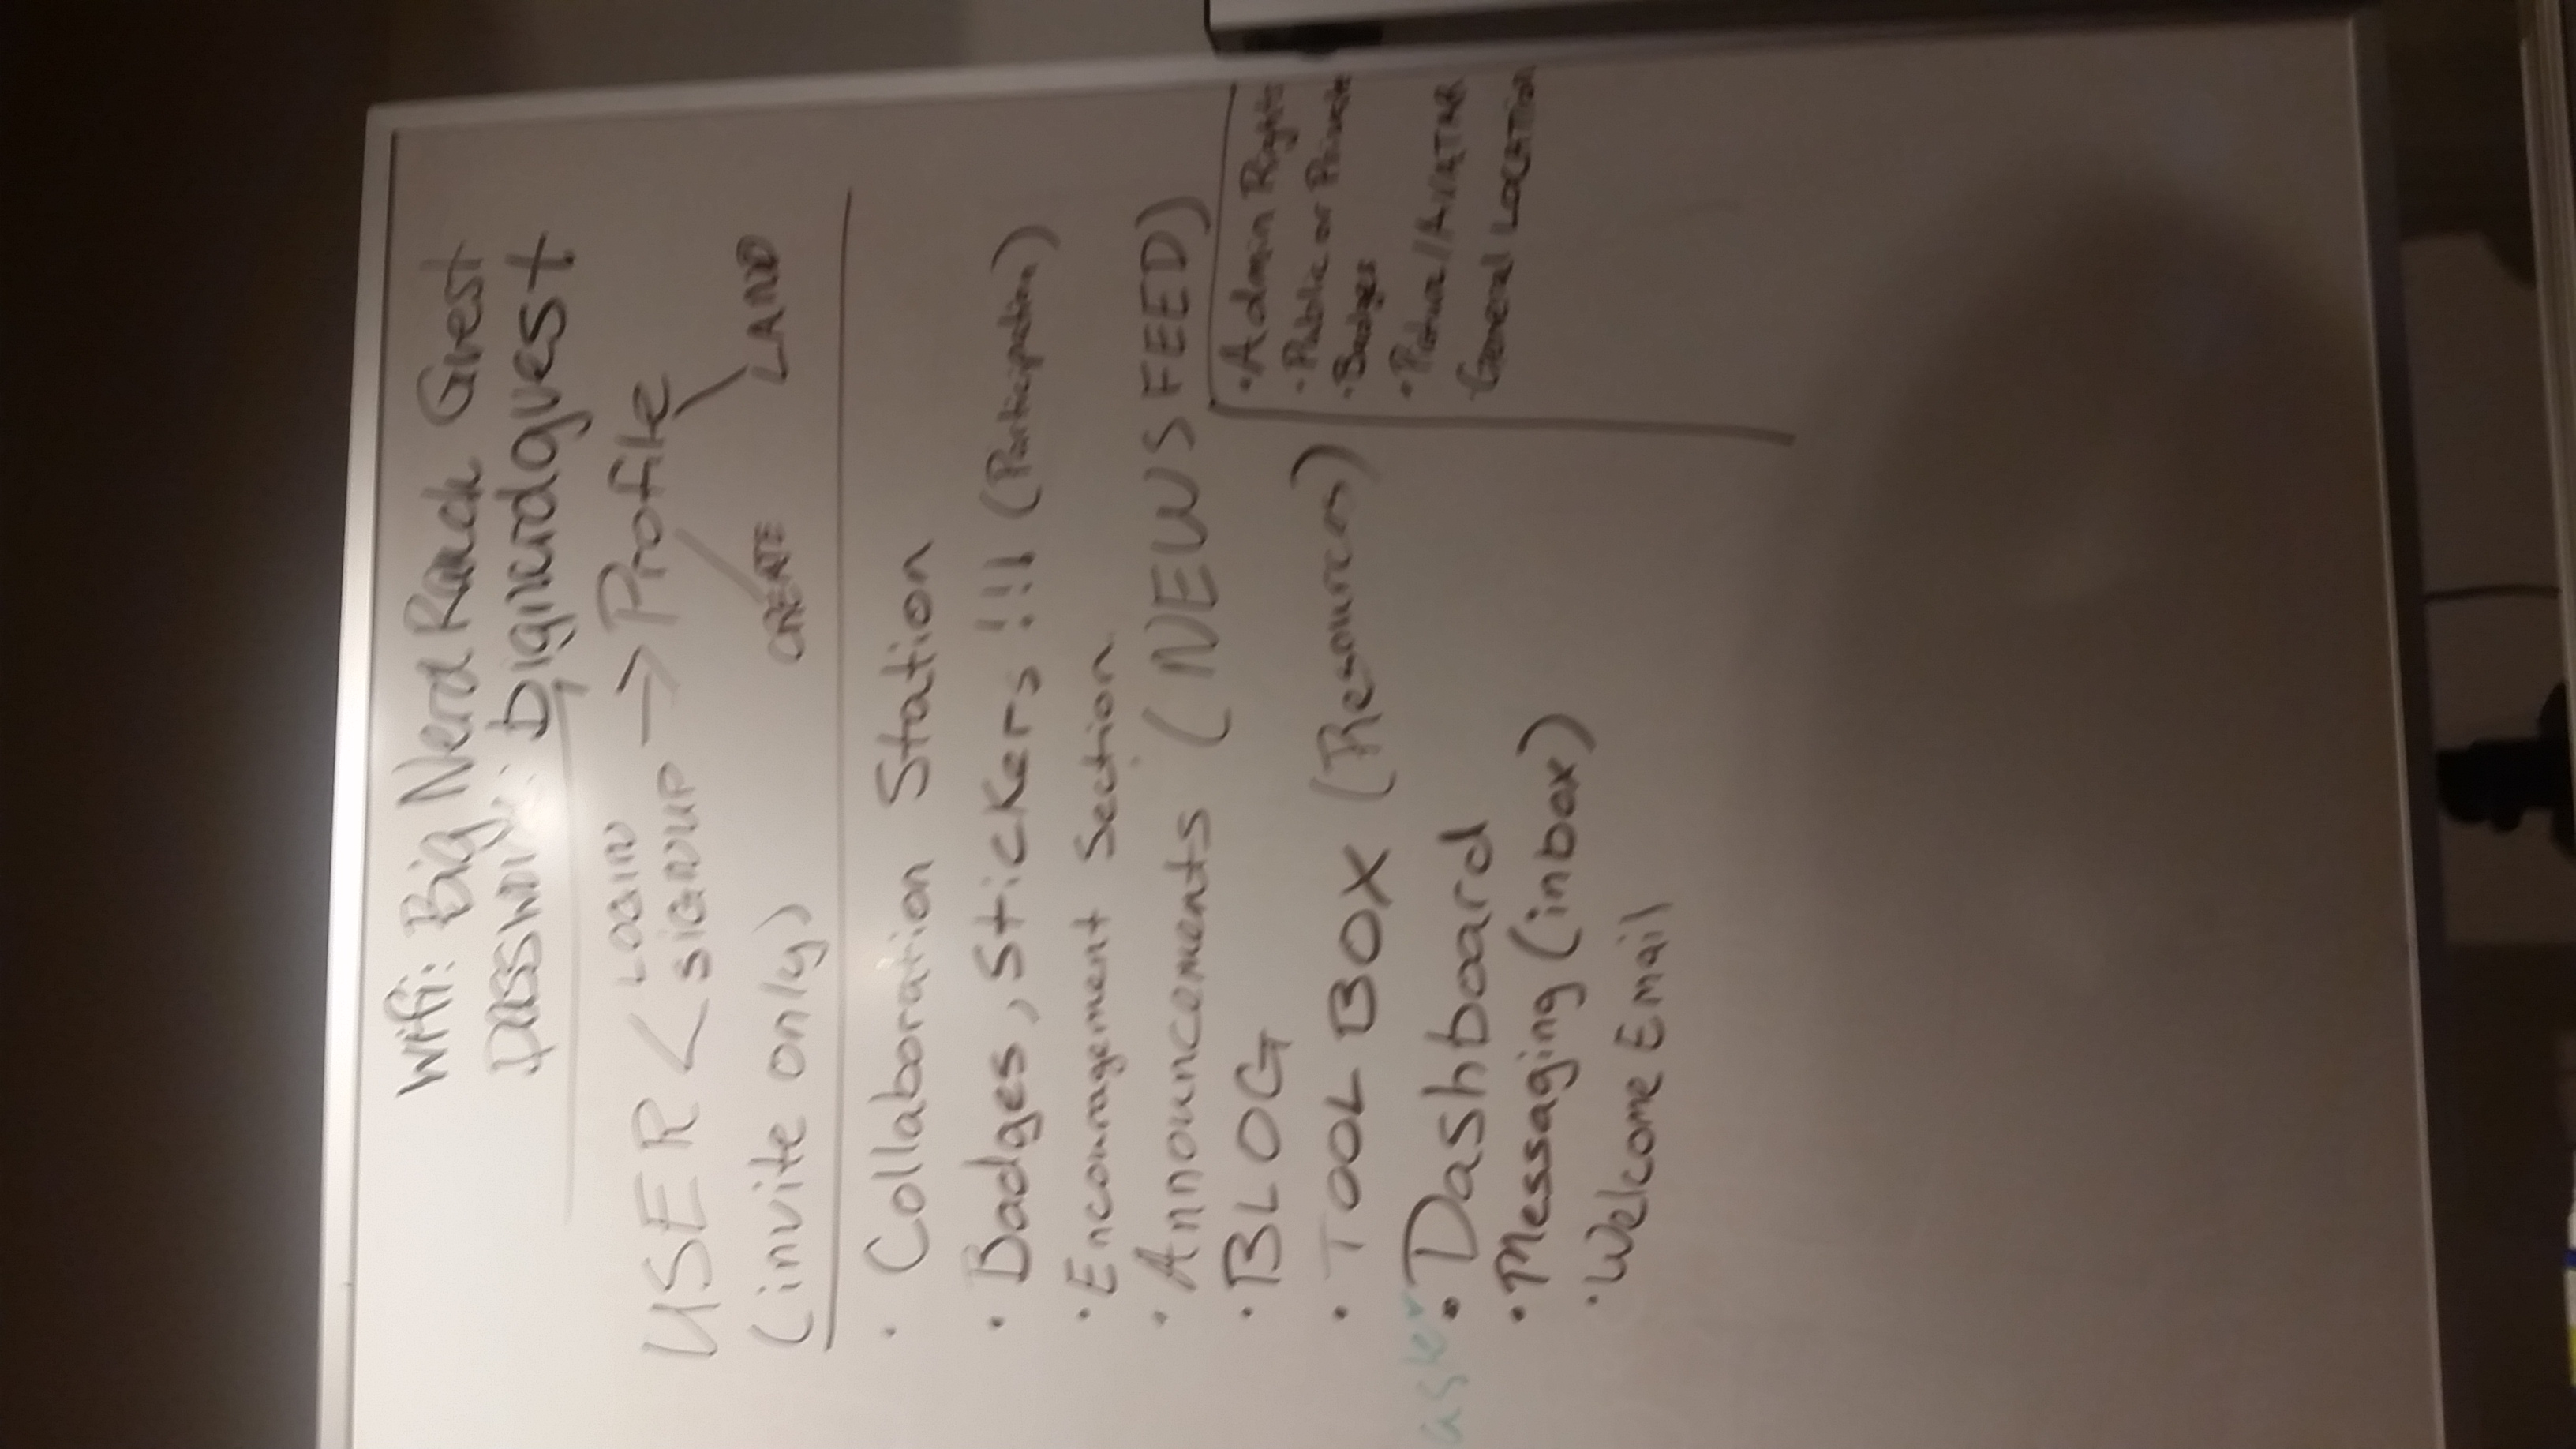 Wifi: Big Nerd Ranch Guest
password: bignerdguest
USER < LOGIN
SIGNUP → Profile
(invite only)
CREATE
LAND
· Collaboration Station
· Badges, Stickers !!! (Participation)
· Encouragement Section
· Announcements (NEWSFEED)
· BLOG
· TOOL BOX (Resources)
ask
· Dashboard
· Messaging (inbox)
· Welcome Email
· Admin Rights
· Public or Private
· Badges
· Picture/AVATAR
· General LOCATION